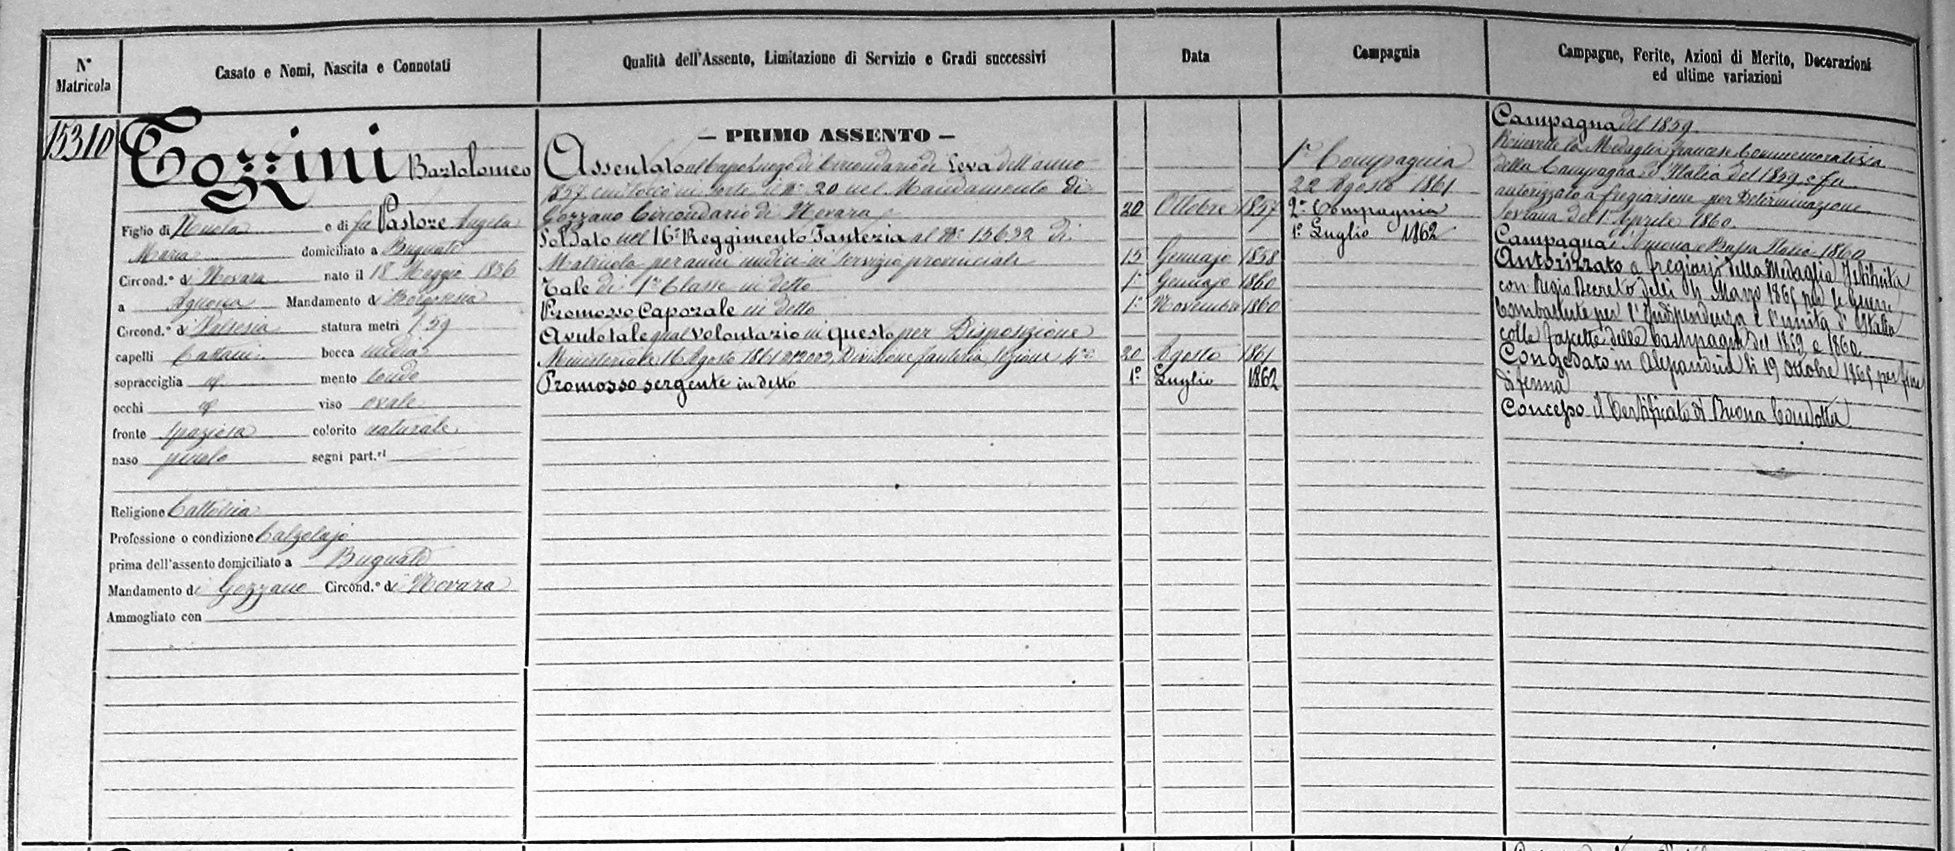 N° Matricola
Casato e Nomi, Nascita e Connotati
Qualità dell'Assento, Limitazione di Servizio e Gradi successivi
Data
Compagnia
Campagne, Ferite, Azioni di Merito, Decorazioni
ed ultime variazioni
15310
Tozzini Bartolomeo
Figlio di Nicola e di fu Pastore Angela
Maria domiciliato a Bugnate
Circond.° di Novara nato il 18 Maggio 1836
a Agnona Mandamento di Borgosesia
Circond.° di Valsesia statura metri 1.59
capelli Castani bocca media
sopracciglia id mento tondo
occhi id viso ovale
fronte spaziosa colorito naturale
naso piccolo segni part.ri
Religione Cattolica
Professione o condizione Calzolajo
prima dell'assento domiciliato a Bugnate
Mandamento di Gozzano Circond.° di Novara
Ammogliato con
— PRIMO ASSENTO —
Assentato al Capo luogo di Circondario di Leva dell'anno
1857 cui toccò in sorte il N° 20 nel Mandamento di
Gozzano Circondario di Novara 20 Ottobre 1857
Soldato nel 16° Reggimento Fanteria al N° 15632 di
Matricola per anni undici in servizio provinciale 15 Gennajo 1858
Tale di 1a Classe in detto 1° Gennajo 1860
Promosso Caporale in detto 1° Novembre 1860
Avuto tale qual volontario in questo per Disposizione
Ministeriale 16 Agosto 1861 N° 2002, Divisione fanteria, Sezione 4a 20 Agosto 1861
Promosso sergente in detto 1° Luglio 1862
1a Compagnia
22 Agosto 1861
2a Compagnia
1° Luglio 1862
Campagna del 1859
Ricevette la Medaglia francese Commemorativa
della Campagna d'Italia del 1859 e fu
autorizzato a fregiarsene per Determinazione
Sovrana del 1° Aprile 1860
Campagna Ancona e Bassa Italia 1860
Autorizzato a fregiarsi della Medaglia Istituita
con Regio Decreto delli 4 Marzo 1865 per le Guerre
Combattute per l'Indipendenza e l'unità d'Italia
colle fascette delle Campagne del 1859 e 1860
Congedato in Alessandria li 19 Ottobre 1865 per fine
di ferma
Concesso il Certificato di Buona Condotta